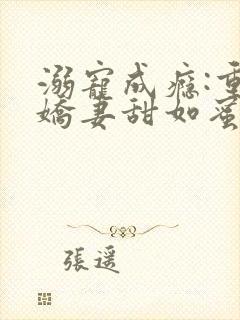 溺寵成瘾:重
嬌妻甜如蜜
張遥